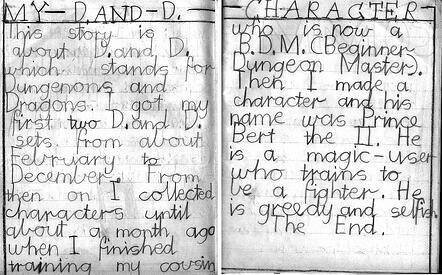 MY-D.AND-D.-
This story is
about D.and. D.
which stands for
Dungenons and
Dragons. I got my
first two D.and D.
sets from about
February to
December. From
then on I collected
characters until
about a month ago
when I finished
training my cousin
-CHARACTER-
who is now a
B.D.M.(Beginner
Dungeon Master).
Then I made a
character and his
name was Prince
Bert the II. He
is a magic-user
who trains to
be a fighter. He
is greedy and selfish.
The End.